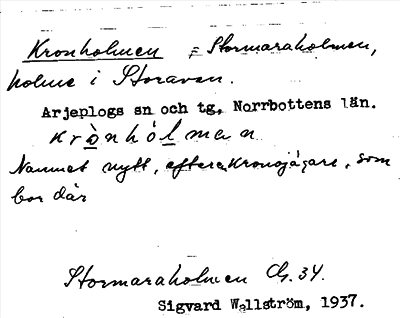 Kronholmen = Stormaraholmen,
holme i Storavan.
Arjeplogs sn och tg, Norrbottens län.
krònhólman
Namnet nytt, efter kronojägare, som
bor där
Stormaraholmen Ch. 34.
Sigvard Wallström, 1937.